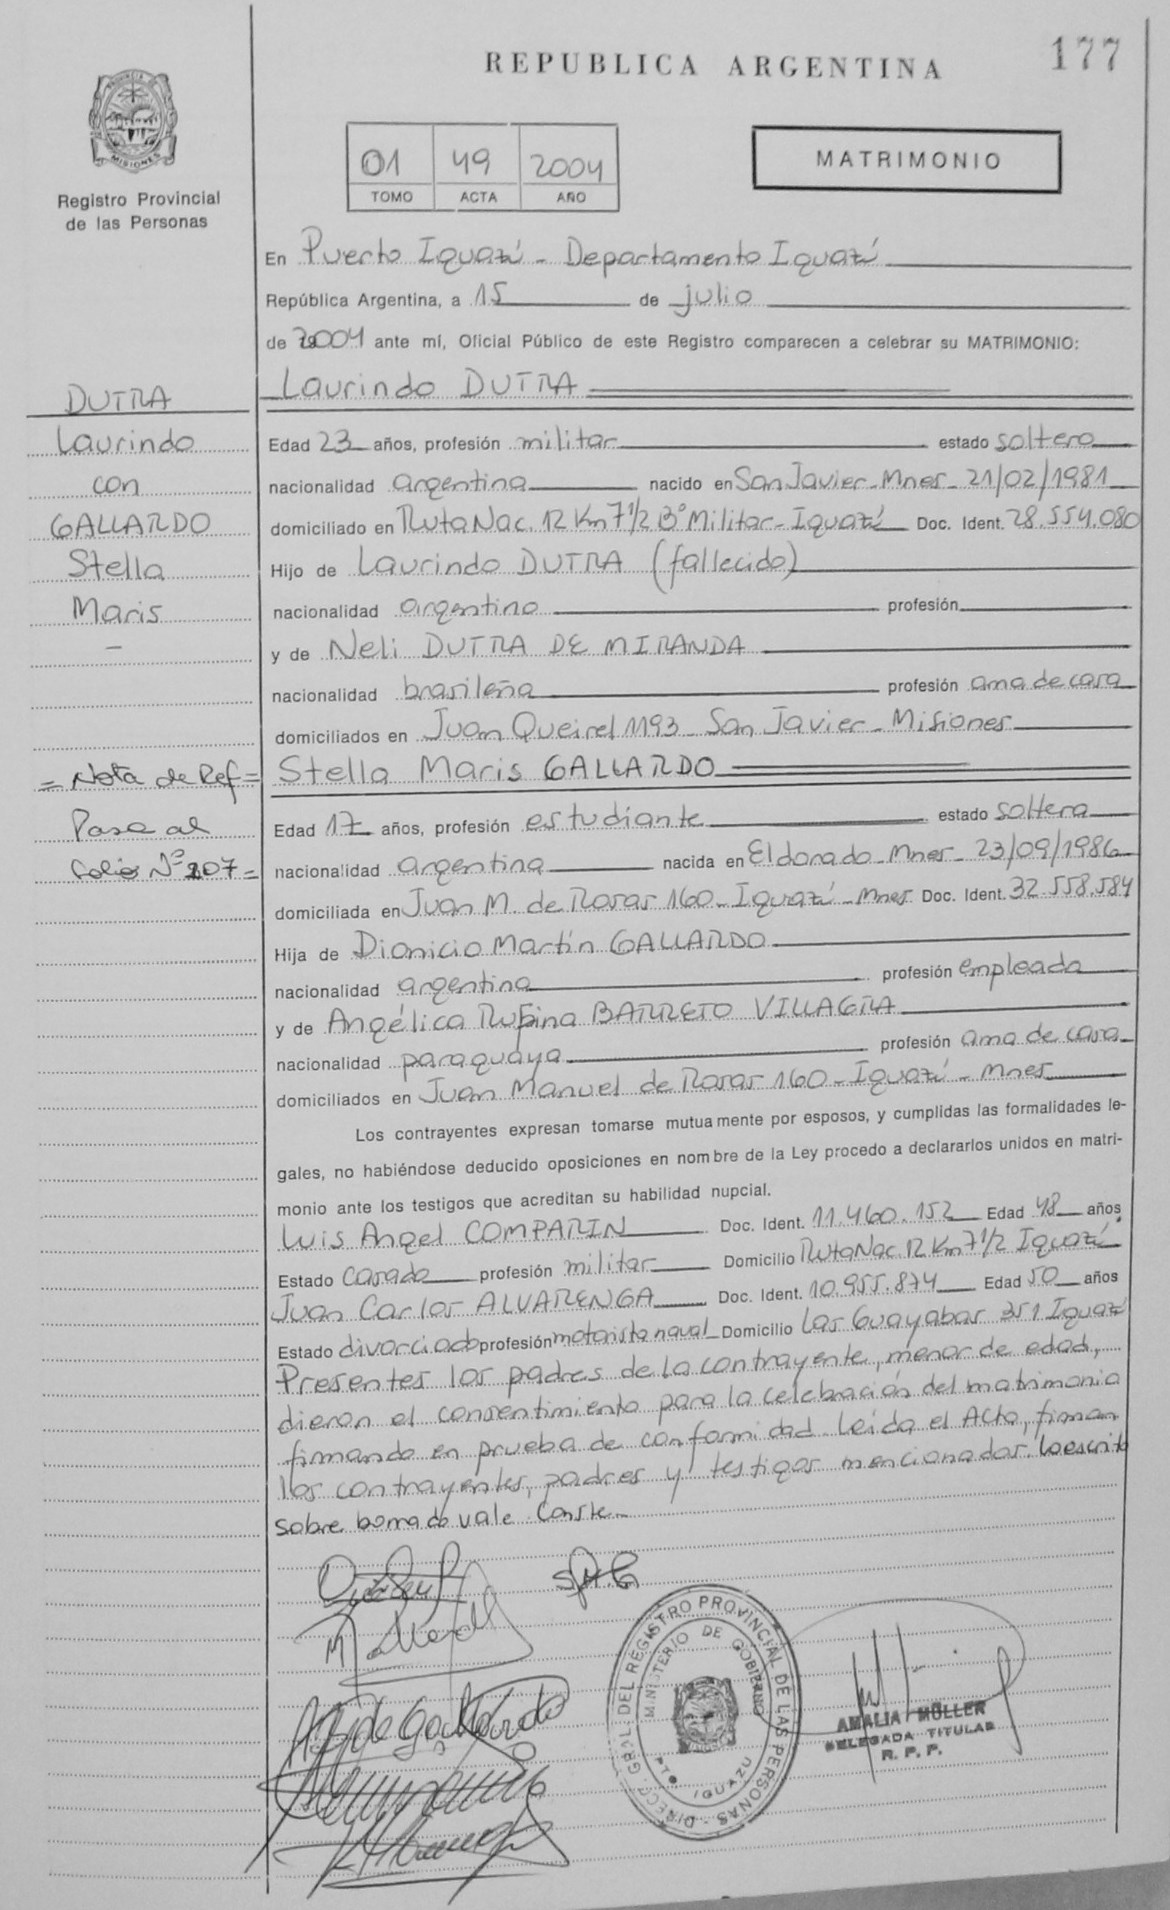 177
REPUBLICA ARGENTINA
PROVINCIA DE
MISIONES
Registro Provincial
de las Personas
01 49 2004
TOMO ACTA AÑO
MATRIMONIO
En Puerto Iguazú - Departamento Iguazú
República Argentina, a 15 de julio
de 2004 ante mí, Oficial Público de este Registro comparecen a celebrar su MATRIMONIO:
Laurindo DUTRA
Edad 23 años, profesión militar estado soltero
nacionalidad argentina nacido en San Javier - Mnes - 21/02/1981
domiciliado en Ruta Nac. 12 Km 7 1/2 Bº Militar - Iguazú Doc. Ident. 28.554.080
Hijo de Laurindo DUTRA (fallecido)
nacionalidad argentino profesión
y de Neli DUTRA DE MIRANDA
nacionalidad brasileña profesión ama de casa
domiciliados en Juan Queirel 1193 - San Javier - Misiones
Stella Maris GALLARDO
Edad 17 años, profesión estudiante estado soltera
nacionalidad argentina nacida en Eldorado - Mnes - 23/09/1986
domiciliada en Juan M. de Rosas 160 - Iguazú - Mnes Doc. Ident. 32.558.584
Hija de Dionicio Martín GALLARDO
nacionalidad argentina profesión empleado
y de Angélica Rufina BARRETO VILLAGRA
nacionalidad paraguaya profesión ama de casa
domiciliados en Juan Manuel de Rosas 160 - Iguazú - Mnes
Los contrayentes expresan tomarse mutuamente por esposos, y cumplidas las formalidades le-
gales, no habiéndose deducido oposiciones en nombre de la Ley procedo a declararlos unidos en matri-
monio ante los testigos que acreditan su habilidad nupcial.
Luis Angel COMPARIN Doc. Ident. 11.460.152 Edad 48 años
Estado casado profesión militar Domicilio Ruta Nac. 12 Km 7 1/2 Iguazú
Juan Carlos ALVARENGA Doc. Ident. 10.955.874 Edad 50 años
Estado divorciado profesión motorista naval Domicilio Las Guayabas 351 Iguazú
Presentes los padres de la contrayente, menor de edad,
dieron el consentimiento para la celebración del matrimonio
firmando en prueba de conformidad. Leida el Acta, firman
los contrayentes, padres y testigos mencionados. Lo escrito
sobre borrado vale. Conste.
DUTRA
Laurindo
con
GALLARDO
Stella
Maris
-
= Nota de Ref =
Pasa al
folio Nº 207 =
S.M.G
DIRECC. GRAL DEL REGISTRO PROVINCIAL DE LAS PERSONAS -
MINISTERIO DE GOBIERNO
PTO. IGUAZU
AMALIA MÜLLER
DELEGADA TITULAR
R. P. P.